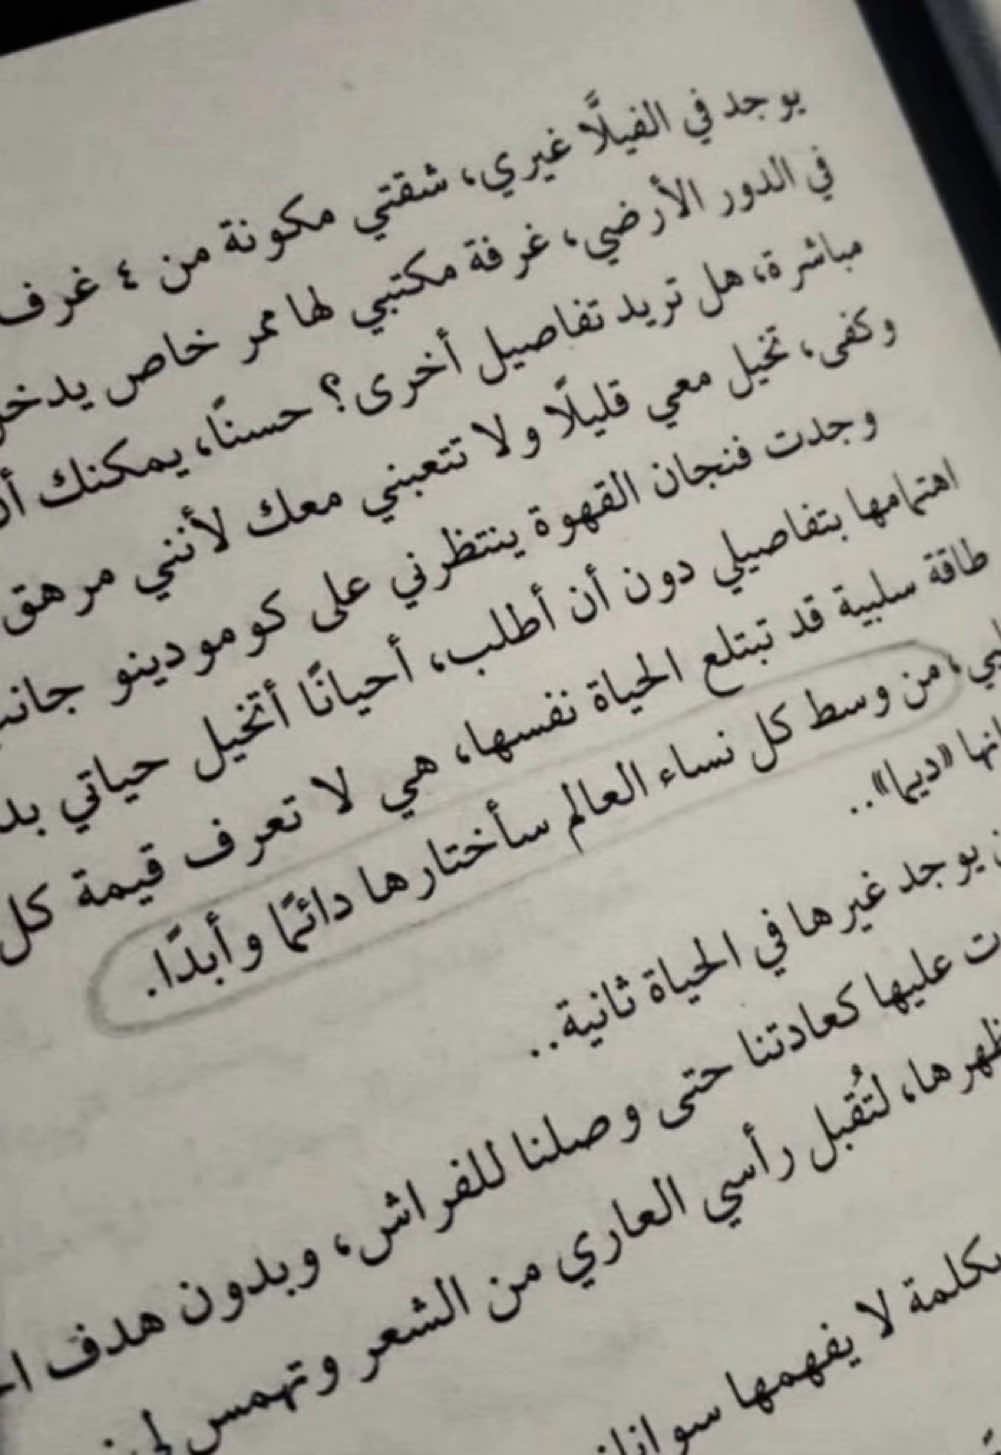 يوجد في الفيلًا غيري، شقتي مكونة من ٤ غرف
في الدور الأرضي، غرفة مكتبي لها ممر خاص
مباشرة، هل تريد تفاصيل أخرى؟ حسنًا، يمكنك
وكفى، تخيل معي قليلًا ولا تتعبني معك لأنني مرهق
وجدت فنجان القهوة ينتظرني على كومودينو
اهتمامها بتفاصيلي دون أن أطلب، أحيانًا أتخيل حياتي
طاقة سلبية قد تبتلع الحياة نفسها، هي لا تعرف قيمة كل
من وسط كل نساء العالم سأختارها دائمًا وأبدًا.
«ديما»..
يوجد غيرها في الحياة ثانية..
عليها كعادتنا حتى وصلنا للفراش، وبدون هدف
لتُقبل رأسي العاري من الشعر وتهمس
لا يفهمها